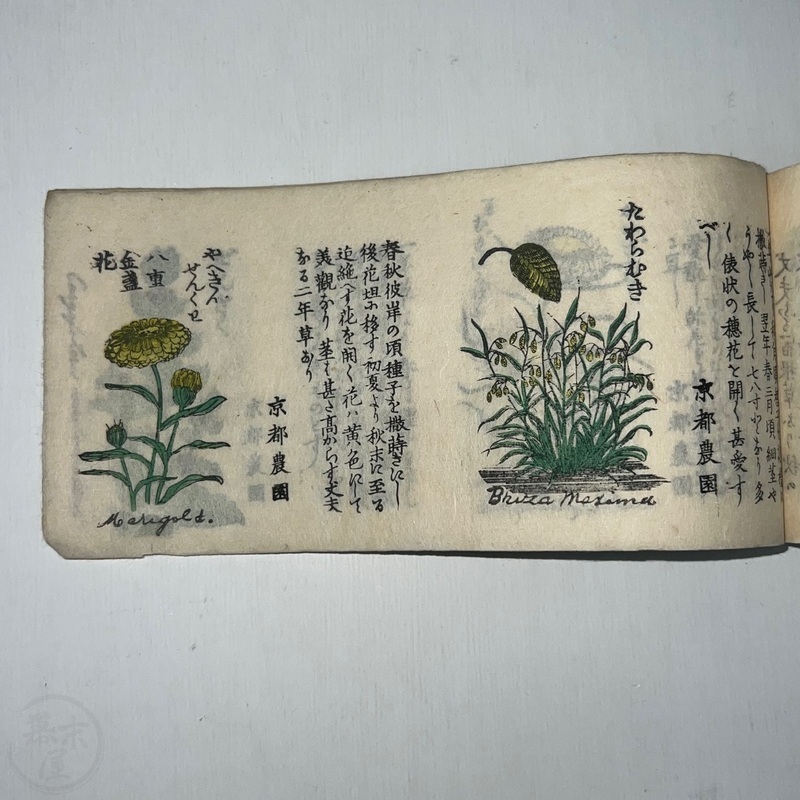 撒蒔き翌年春三月頃細茎や
うやし長して七八寸なり多
く俵状の穂花を開く甚愛す
べし
京都農園
たわらむき
Maxima
春秋彼岸の頃種子を撒蒔きにし
後花坦に移す初夏より秋末に至る
迄絶へす花を開く花ハ黄色にして
美觀なり茎も甚き高からす丈夫
なる二年草なり
京都農園
やへきん
せんくわ
八重
金盞
花
Marigold.